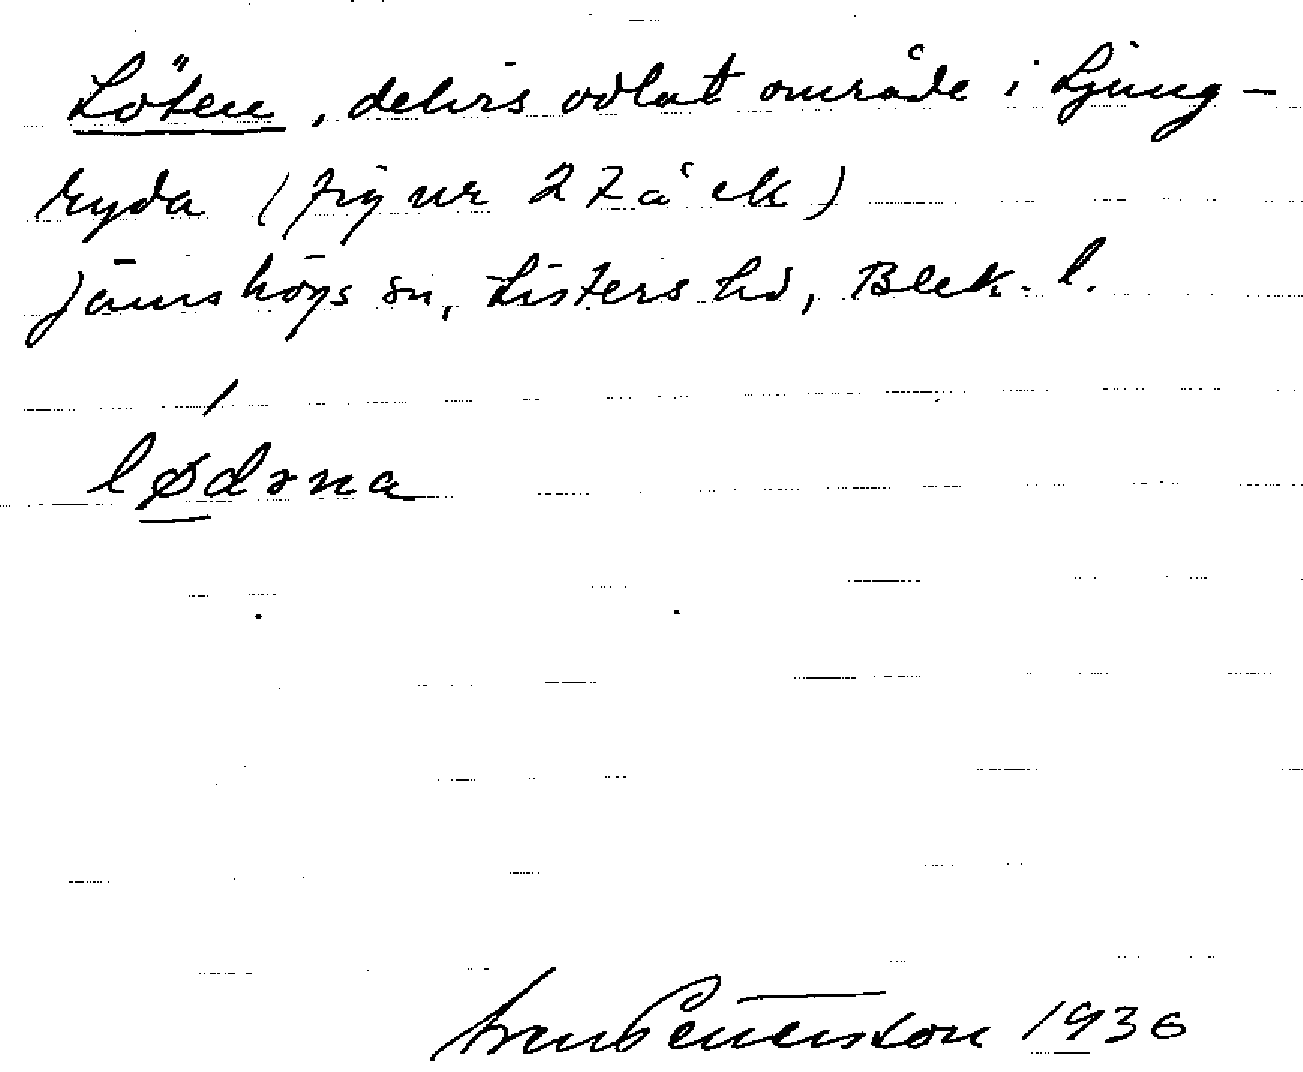 Löten, delvis odlat område i Ljung-
ryda (fig nr 27 å ek)
Jämshögs sn, Listers hd, Blek. l.
lødəna
Pettersson 1936